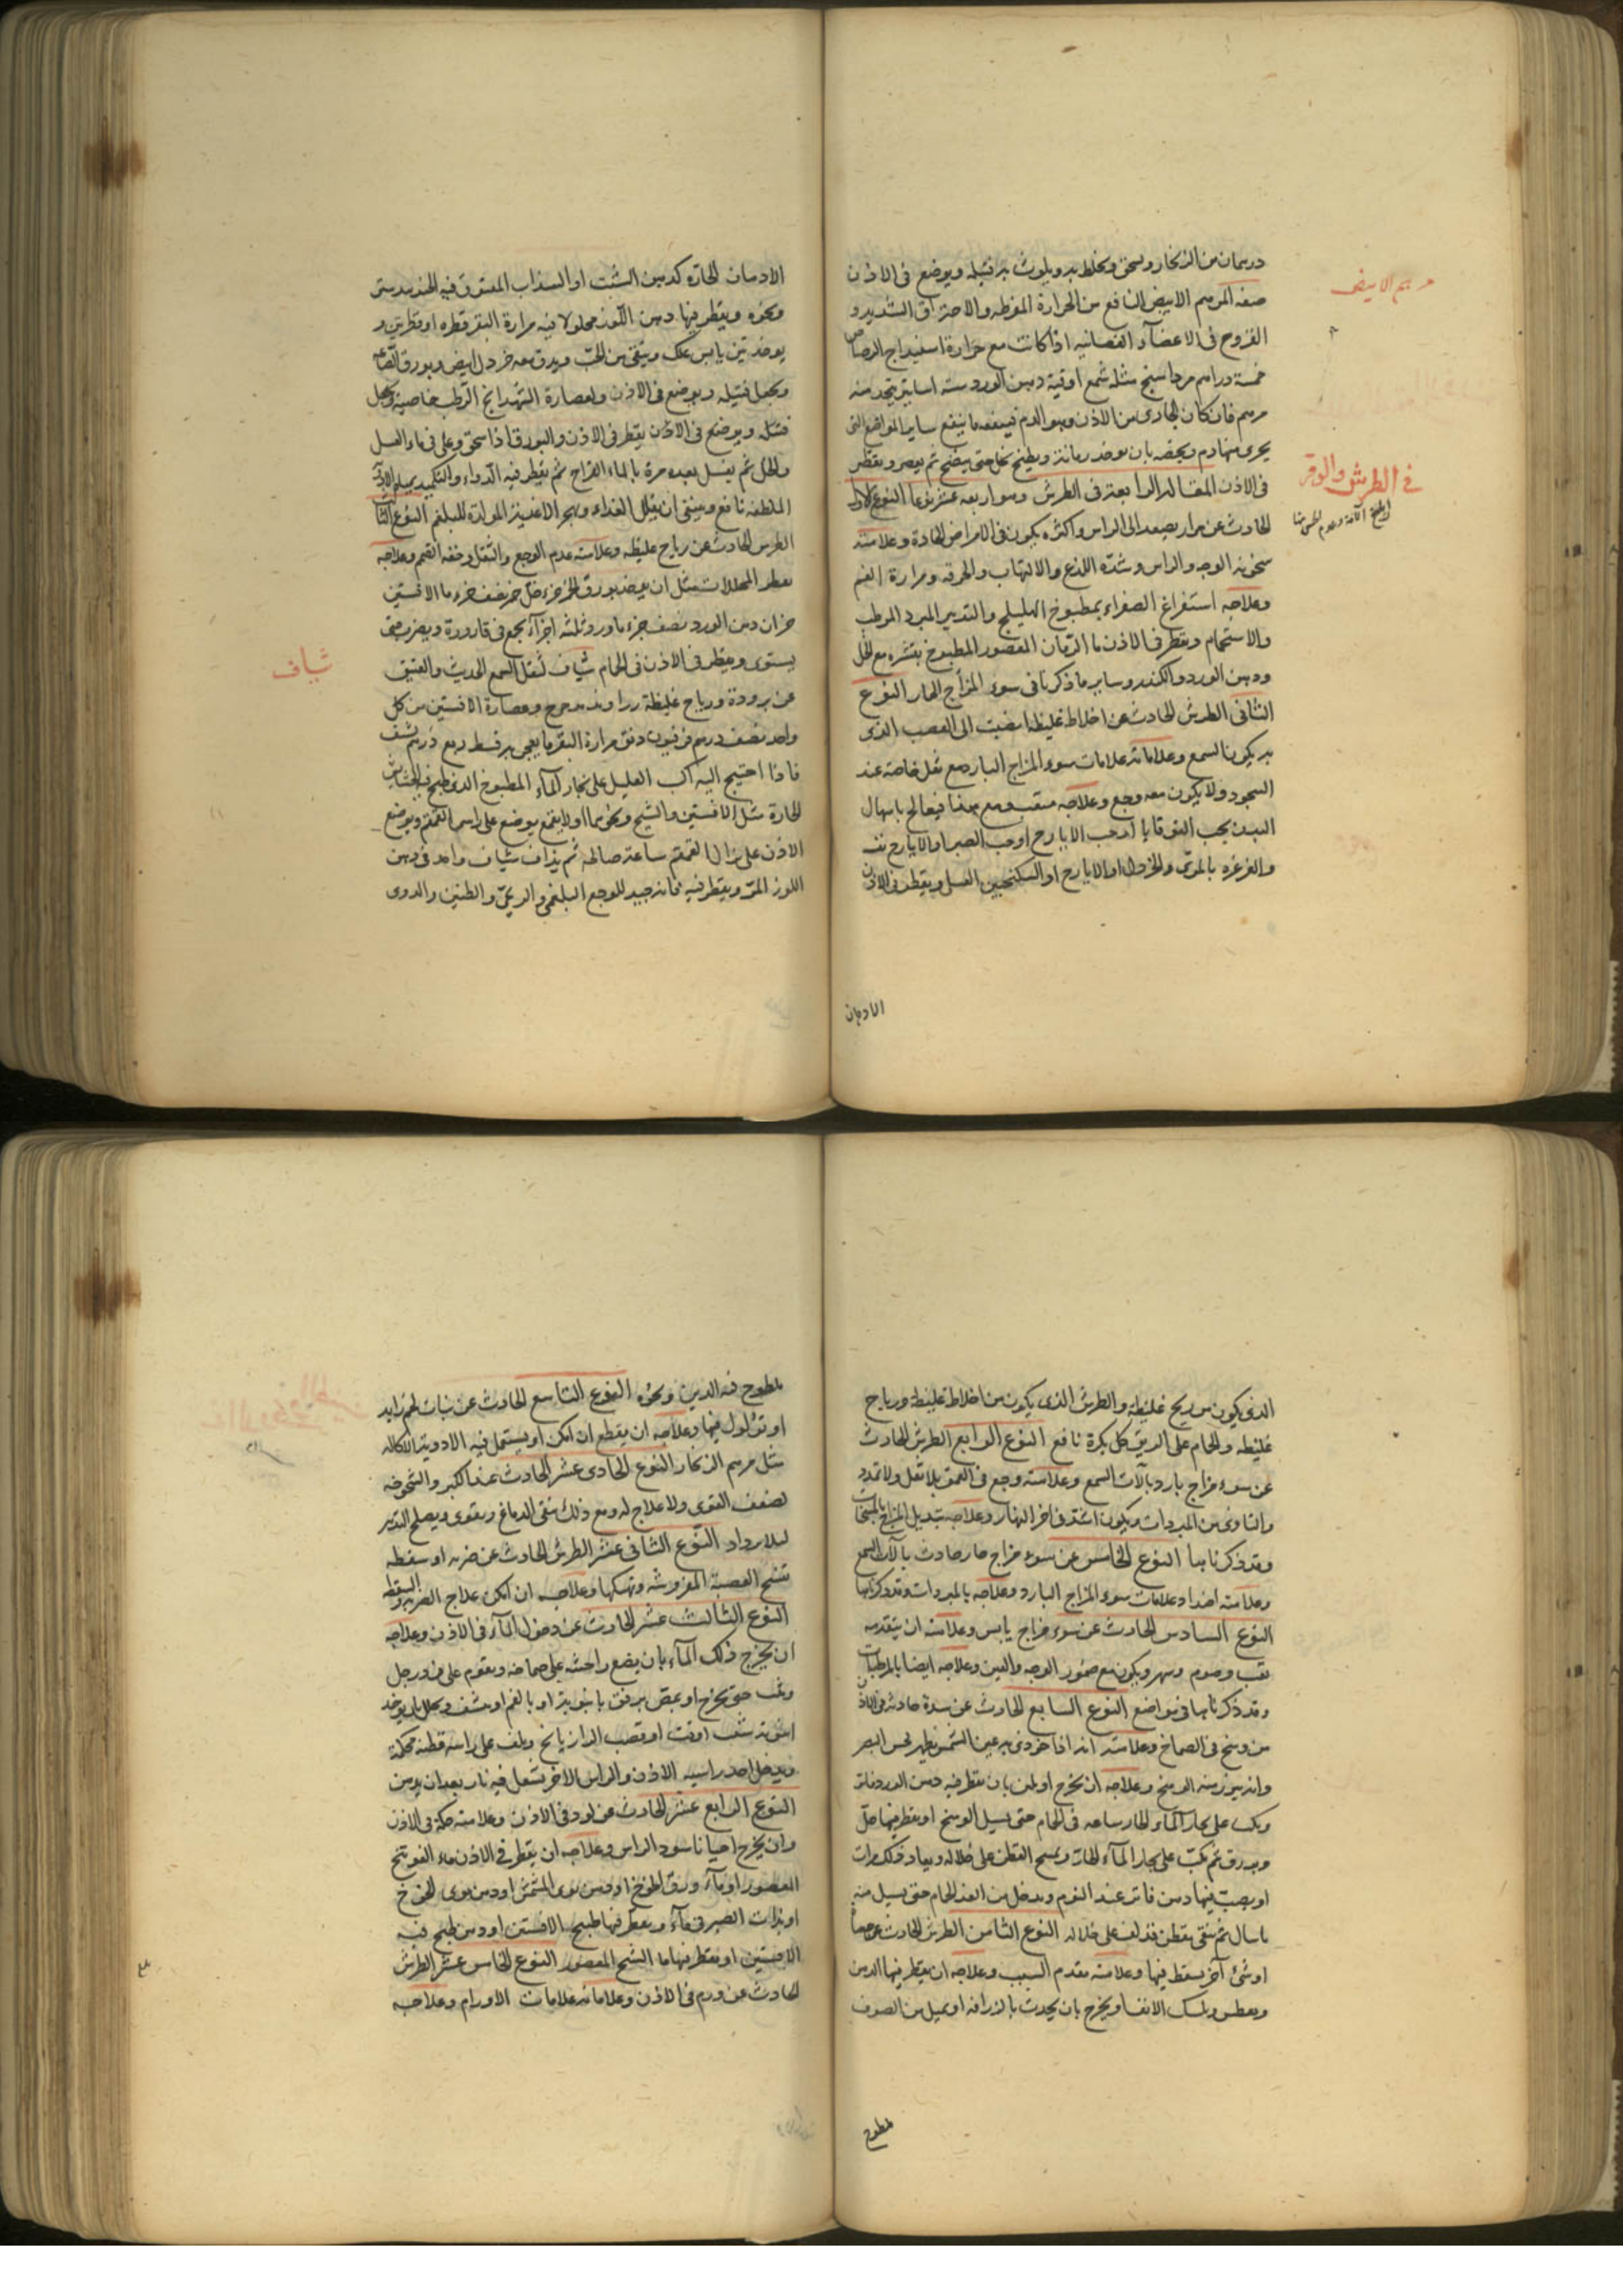 درهمان من الزنجار ويسحق ويخلط به ويلوث به فتيله ويوضع فى الاذن
صفه المرهم الابيض النافع من الحرارة المفرطه والاحتراق الشديد و
القروح فى الاعضآء العصبانيه اذا كانت مع حرارة اسفيداج الرصاص
خمسة دراهم مرداسنج مثله شمع اوقية دهن الورد ستة اساتير يتخذ منه
مرهم فان كان الجارى من الاذن وهو الدم فينفعه ما ينفع ساير المواضع التى
يجرى منها دم ويخصه بان يوخذ رمانة ويطبخ بخل حتى ينضج ثم يعصر ويقطر
فى الاذن المقاله الرابعة فى الطرش وهو اربعة عشر نوعا النوع الاول
الحادث عن مرار يصعد الى الراس واكثره يكون فى الامراض الحادة وعلامته
سخونة الوجه والراس وشدّه اللذع والالتهاب والحرقه ومرارة الفم
وعلاجه استفراغ الصفراء بمطبوخ الهليلج والتدبير المبرد المرطب
والاستحمام ويقطر فى الاذن ما الرّمان المعصور المطبوخ بقشره مع الخل
ودهن الورد والكندر وساير ما ذكرنا فى سوء المزاج الحار النوع
الثانى الطرش الحادث عن اخلاط غليظه انصبت الى العصب الذى
به يكون السمع وعلاماته علامات سوء المزاج البارد مع ثقل خاصة عند
السجود ولا يكون معه وجع وعلاجه فيعالج باسهال
البدن بحب القوقايا او حب الايارج او حب الصبر او الايارج نفسه
والغرغره بالمرى والخردل او الايارج او السكنجبين العسل ويقطر فى الاذن
الادهان
مرهم الابيض
فى الطرش والوقر
الادهان الحارّه كدهن الشبت او السذاب المفتوق فيه الجندبيدستر
ونحوه ويقطر فيها دهن اللّوز محلولا فيه مرارة البقر قطره او قطرتين و
يوخذ تين يابس علك وينقى من الحبّ ويدق معه خردل ابيض وبورق
ويجعل فتيله ويوضع فى الاذن ولعصارة الشهدانج الرّطب خاصية ويجعل
فتيله ويوضع فى الاذن يقطر فى الاذن والبورق اذا سحق وغلى فى ماء العسل
والخل ثم يغسل بعده مرة بالماء القراح ثم يقطر فيه الدواء والتكميد
الملطفه نافع وينبغى ان يقلل الغذاء ويهجر الاغذية المولدة للبلغم النوع الثالث
الطرش الحادث عن رياح غليظه وعلامته عدم الوجع والثقل وخفه الفهم وعلاجه
تقطير المحللات مثل ان يوخذ بورق جزء خل خمر نصف جزء ما الافسنتين
جزان دهن الورد نصف جزء ماورد ثلثه اجزآء يجمع فى قارورة ويضرب حتى
يستوى ويقطر فى الاذن فى الحمام شياف لثقل السمع الحديث والعتيق
عن برودة ورياح غليظة زراوند مدحرج وعصارة الافسنتين من كل
واحد نصف درهم فرفيون دانق مرارة البقر ما يعجن به قسط ربع درهم يشيف
فاذا احتيج اليه اكب العليل على بخار المآء المطبوخ الذى طبخ فيه الحشايش
الحارة مثل الافسنتين والشيح ونحوهما او لا بقمع يوضع على راس القمقم ويوضع
الاذن على القمقم ساعة صالحه ثم يذاف شياف واحد فى دهن
اللوز المرّ ويقطر فيه فانه جيد للوجع البلغمى والريحى والطنين والدوى
شياف
الذى يكون من ريح غليظه والطرش الذى يكون من اخلاط غليظه ورياح
غليظه والحمام على الريق كل بكرة نافع النوع الرابع الطرش الحادث
عن سوء مزاج بارد بآلات السمع وعلامته وجع فى العمق بلا ثقل ولا تمدد
والتاذى من المبردات ويكون اشدّ فى اخر النهار وعلاجه تبديل المزاج بالمسخنات
وقد ذكرناها النوع الخامس عن سوء مزاج حار حادث بآلات السمع
وعلامته اضداد علامات سوء المزاج البارد وعلاجه بالمبردات وقد ذكرناها
النوع السادس الحادث عن سوء مزاج يابس وعلامته ان يتقدمه
تعب وصوم وسهر ويكون مع ضمور الوجه والعين وعلاجه ايضا بالمرطبات
وقد ذكرناها فى مواضع النوع السابع الحادث عن سدة حادثة فى الاذن
من وسخ فى الصماخ وعلامته انه اذا حوذى به عين الشمس يظهر لحس البصر
وانه يبرز منه الوسخ وعلاجه ان يخرج اولا بان يقطر فيه دهن الورد فاتر
ويكب على بخار المآء الحار ساعه فى الحمام حتى يسيل الوسخ او يقطر فيها خلّ
وبورق ثم يكبّ على بخار المآء الحارّ ويمسح القطن على خلاله ويعاد ذلك مرات
او يصب فيها دهن فاتر عند النوم ويدخل من الغد الحمام حتى يسيل منه
ما سال ثم ينقى بقطن قد لف على خلاله النوع الثامن الطرش الحادث عن حصاة
او شئ آخر يسقط فيها وعلامته تقدم السبب وعلاجه ان يقطر فيها الدهن
ويعطس ويمسك الانف او يخرج بان يجذب بالزراقه او بميل من الصوف
مطوخ
ملطوخ فيه الدبق ونحوه النوع التاسع الحادث عن نبات لحم زايد
او ثؤلول فيها وعلاجه ان يقطع ان امكن او يستعمل فيه الادوية الاكاله
مثل مرهم الزنجار النوع الحادى عشر الحادث عند الكبر والشيخوخه
لضعف القوى ولا علاج له ومع ذلك ينقى الدماغ ويقوى ويصلح التدبير
ليلا يزداد النوع الثانى عشر الطرش الحادث عن ضربه او سقطه
تفسخ العصبة المفروشه وتهتكها وعلاجه ان امكن علاج الضربه والسقطه
النوع الثالث عشر الحادث عن دخول المآء فى الاذن وعلاجه
ان يخرج ذلك المآء بان يضع راحته على صماخه ويقوم على فرد رجل
حتى يخرج او يمص برفق بانبوبة او بالفم او ينشف بان يوخذ
انبوبة شبت او قصب الرازيانج ويلف على راسه قطنه محكمة
ويدخل احد راسيه الاذن والراس الاخر يشعل فيه نار بعد ان يدهن
النوع الرابع عشر الحادث عن دود فى الاذن وعلامته حكة فى الاذن
وان يخرج احيانا سود الراس وعلاجه ان يقطر فى الاذن ماء الفوتنج
المعصور او مآء ورق الخوخ او دهن نوى المشمش او دهن نوى الخوخ
او يذاب الصبر فى مآء ويقطر فيها طبيخ الافسنتين او دهن طبخ فيه
الافسنتين او يقطر فيها ما الشيح المعصور النوع الخامس عشر الطرش
الحادث عن ورم فى الاذن وعلاماته علامات الاورام وعلاجه